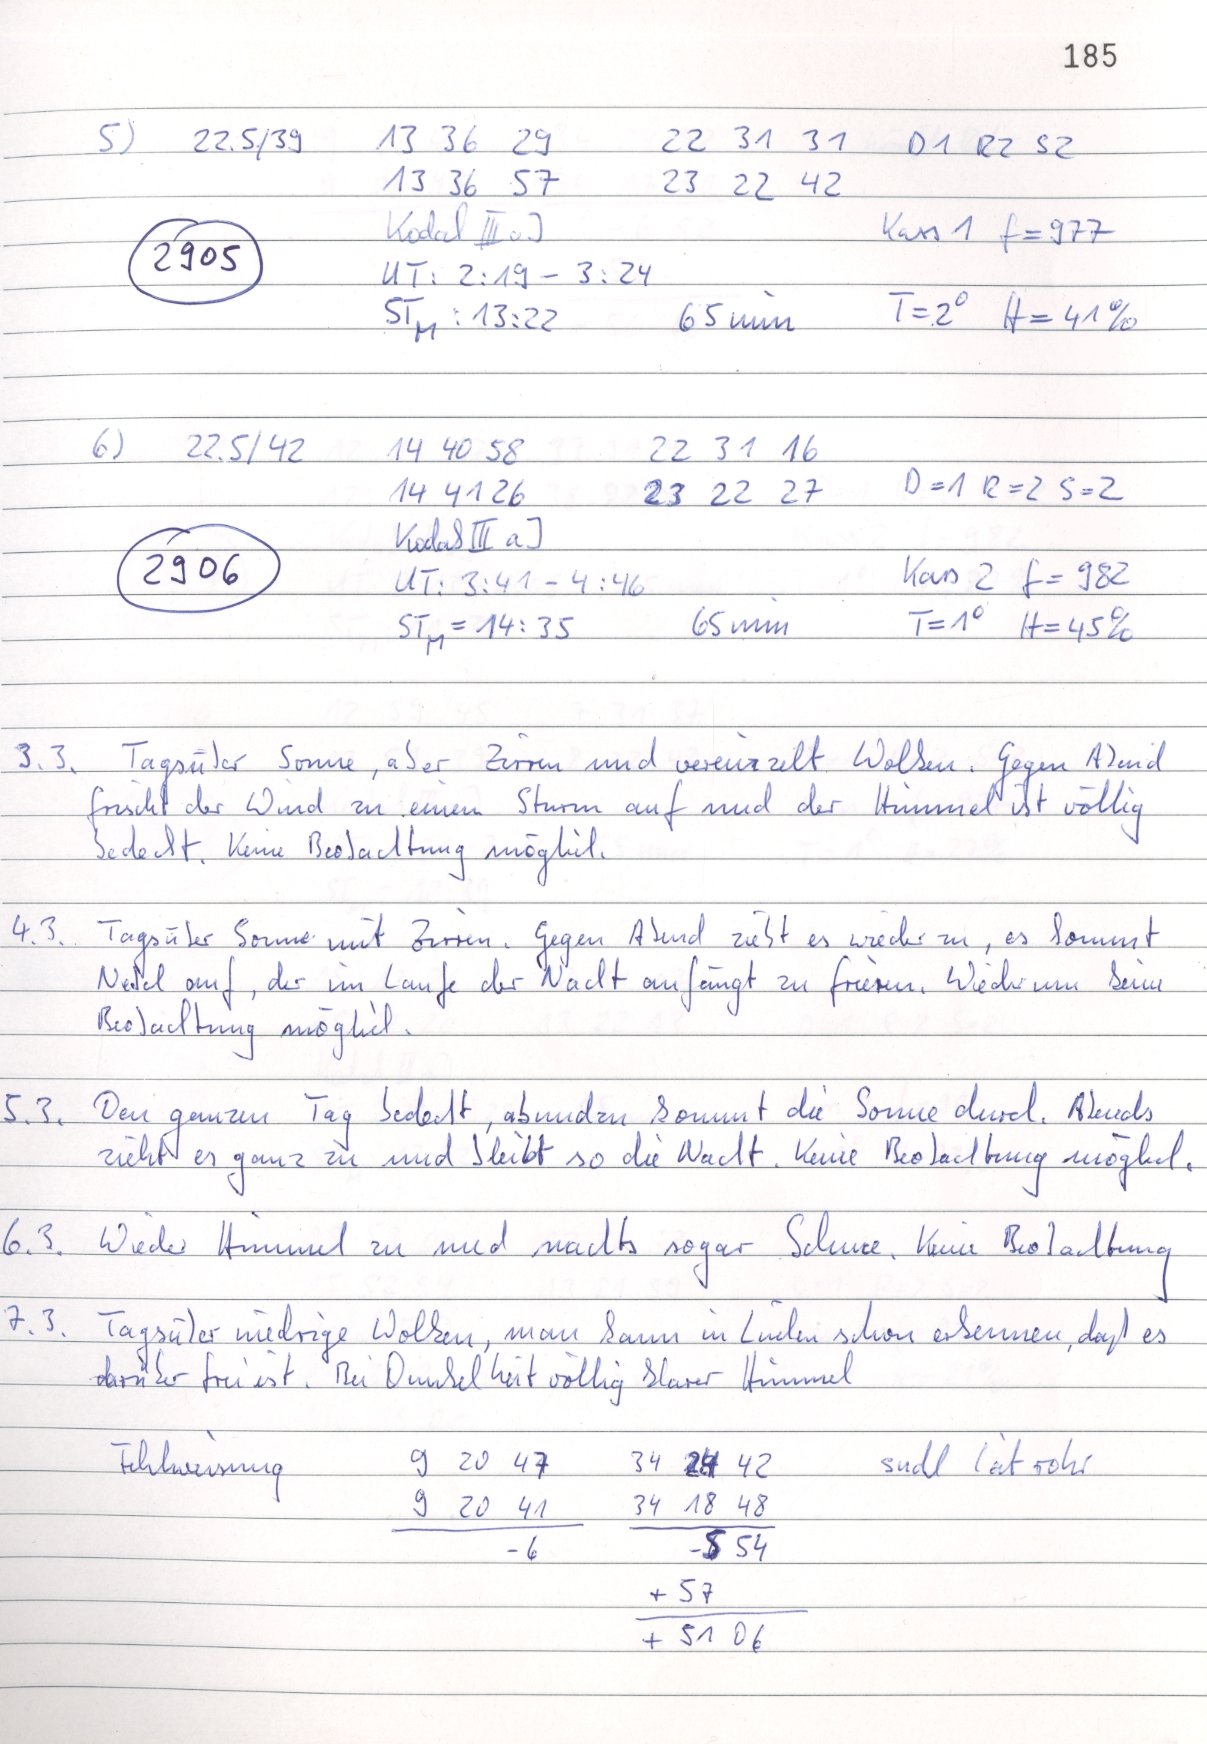 185
5) 22.5/39 13 36 29 22 31 31 D1 R2 S2
13 36 57 23 22 42
Kodak III aJ Kass 1 f=977
2905
UT: 2:19 - 3:24
STM : 13:22 65 min T=2° H=41%
6) 22.5/42 14 40 58 22 31 16
14 41 26 23 22 27 D=1 R=2 S=2
Kodak III aJ
2906
UT: 3:41 - 4:46 Kass 2 f=982
STM = 14:35 65 min T=1° H=45%
3.3. Tagsüber Sonne, aber Zirren und vereinzelt Wolken. Gegen Abend
frischt der Wind zu einem Sturm auf und der Himmel ist völlig
bedeckt. Keine Beobachtung möglich.
4.3. Tagsüber Sonne mit Zirren. Gegen Abend zieht es wieder zu, es kommt
Nebel auf, der im Laufe der Nacht anfängt zu frieren. Wiederum keine
Beobachtung möglich.
5.3. Den ganzen Tag bedeckt, ab und zu kommt die Sonne durch. Abends
zieht es ganz zu und bleibt so die Nacht. Keine Beobachtung möglich.
6.3. Wieder Himmel zu und nachts sogar Schnee. Keine Beobachtung
7.3. Tagsüber niedrige Wolken, man kann in Lücken schon erkennen, daß es
darüber frei ist. Bei Dunkelheit völlig klarer Himmel
Fehlweisung 9 20 47 34 24 42 südl Leitrohr
9 20 41 34 18 48
-6 -5 54
+ 57
+ 51 06